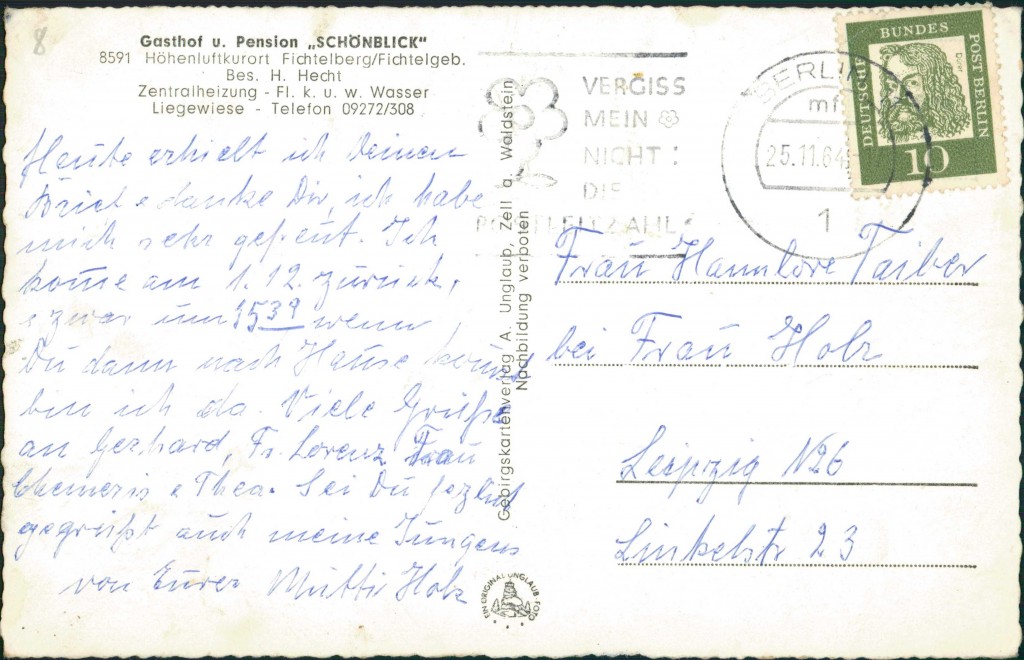 8
Gasthof u. Pension „SCHÖNBLICK"
8591 Höhenluftkurort Fichtelberg/Fichtelgeb.
Bes. H. Hecht
Zentralheizung - Fl. k. u. w. Wasser
Liegewiese - Telefon 09272/308
Heute erhielt ich Deinen
Brief u danke Dir, ich habe
mich sehr gefreut. Ich
kome am 1.12. zurück,
u zwar um 15 39 wenn
Du dann nach Hause kommst
bin ich da. Viele Grüße
an Gerhard, Fr. Lorenz Frau
u Thea. Sei Du herzlich
gegrüßt auch meine Jungens
von Eurer Mutti Holz
Gebirgskartenverlag A. Unglaub, Zell a. Waldstein
Nachbildung verboten
EIN ORIGINAL UNGLAUB-FOTO
VERGISS
MEIN
NICHT:
DIE
POSTLEITZAHL
BERLIN
mf
25.11.64
1
DEUTSCHE BUNDESPOST BERLIN
10
Frau Hannlore Taiber
bei Frau Holz
Leipzig N26
Linkelstr 23